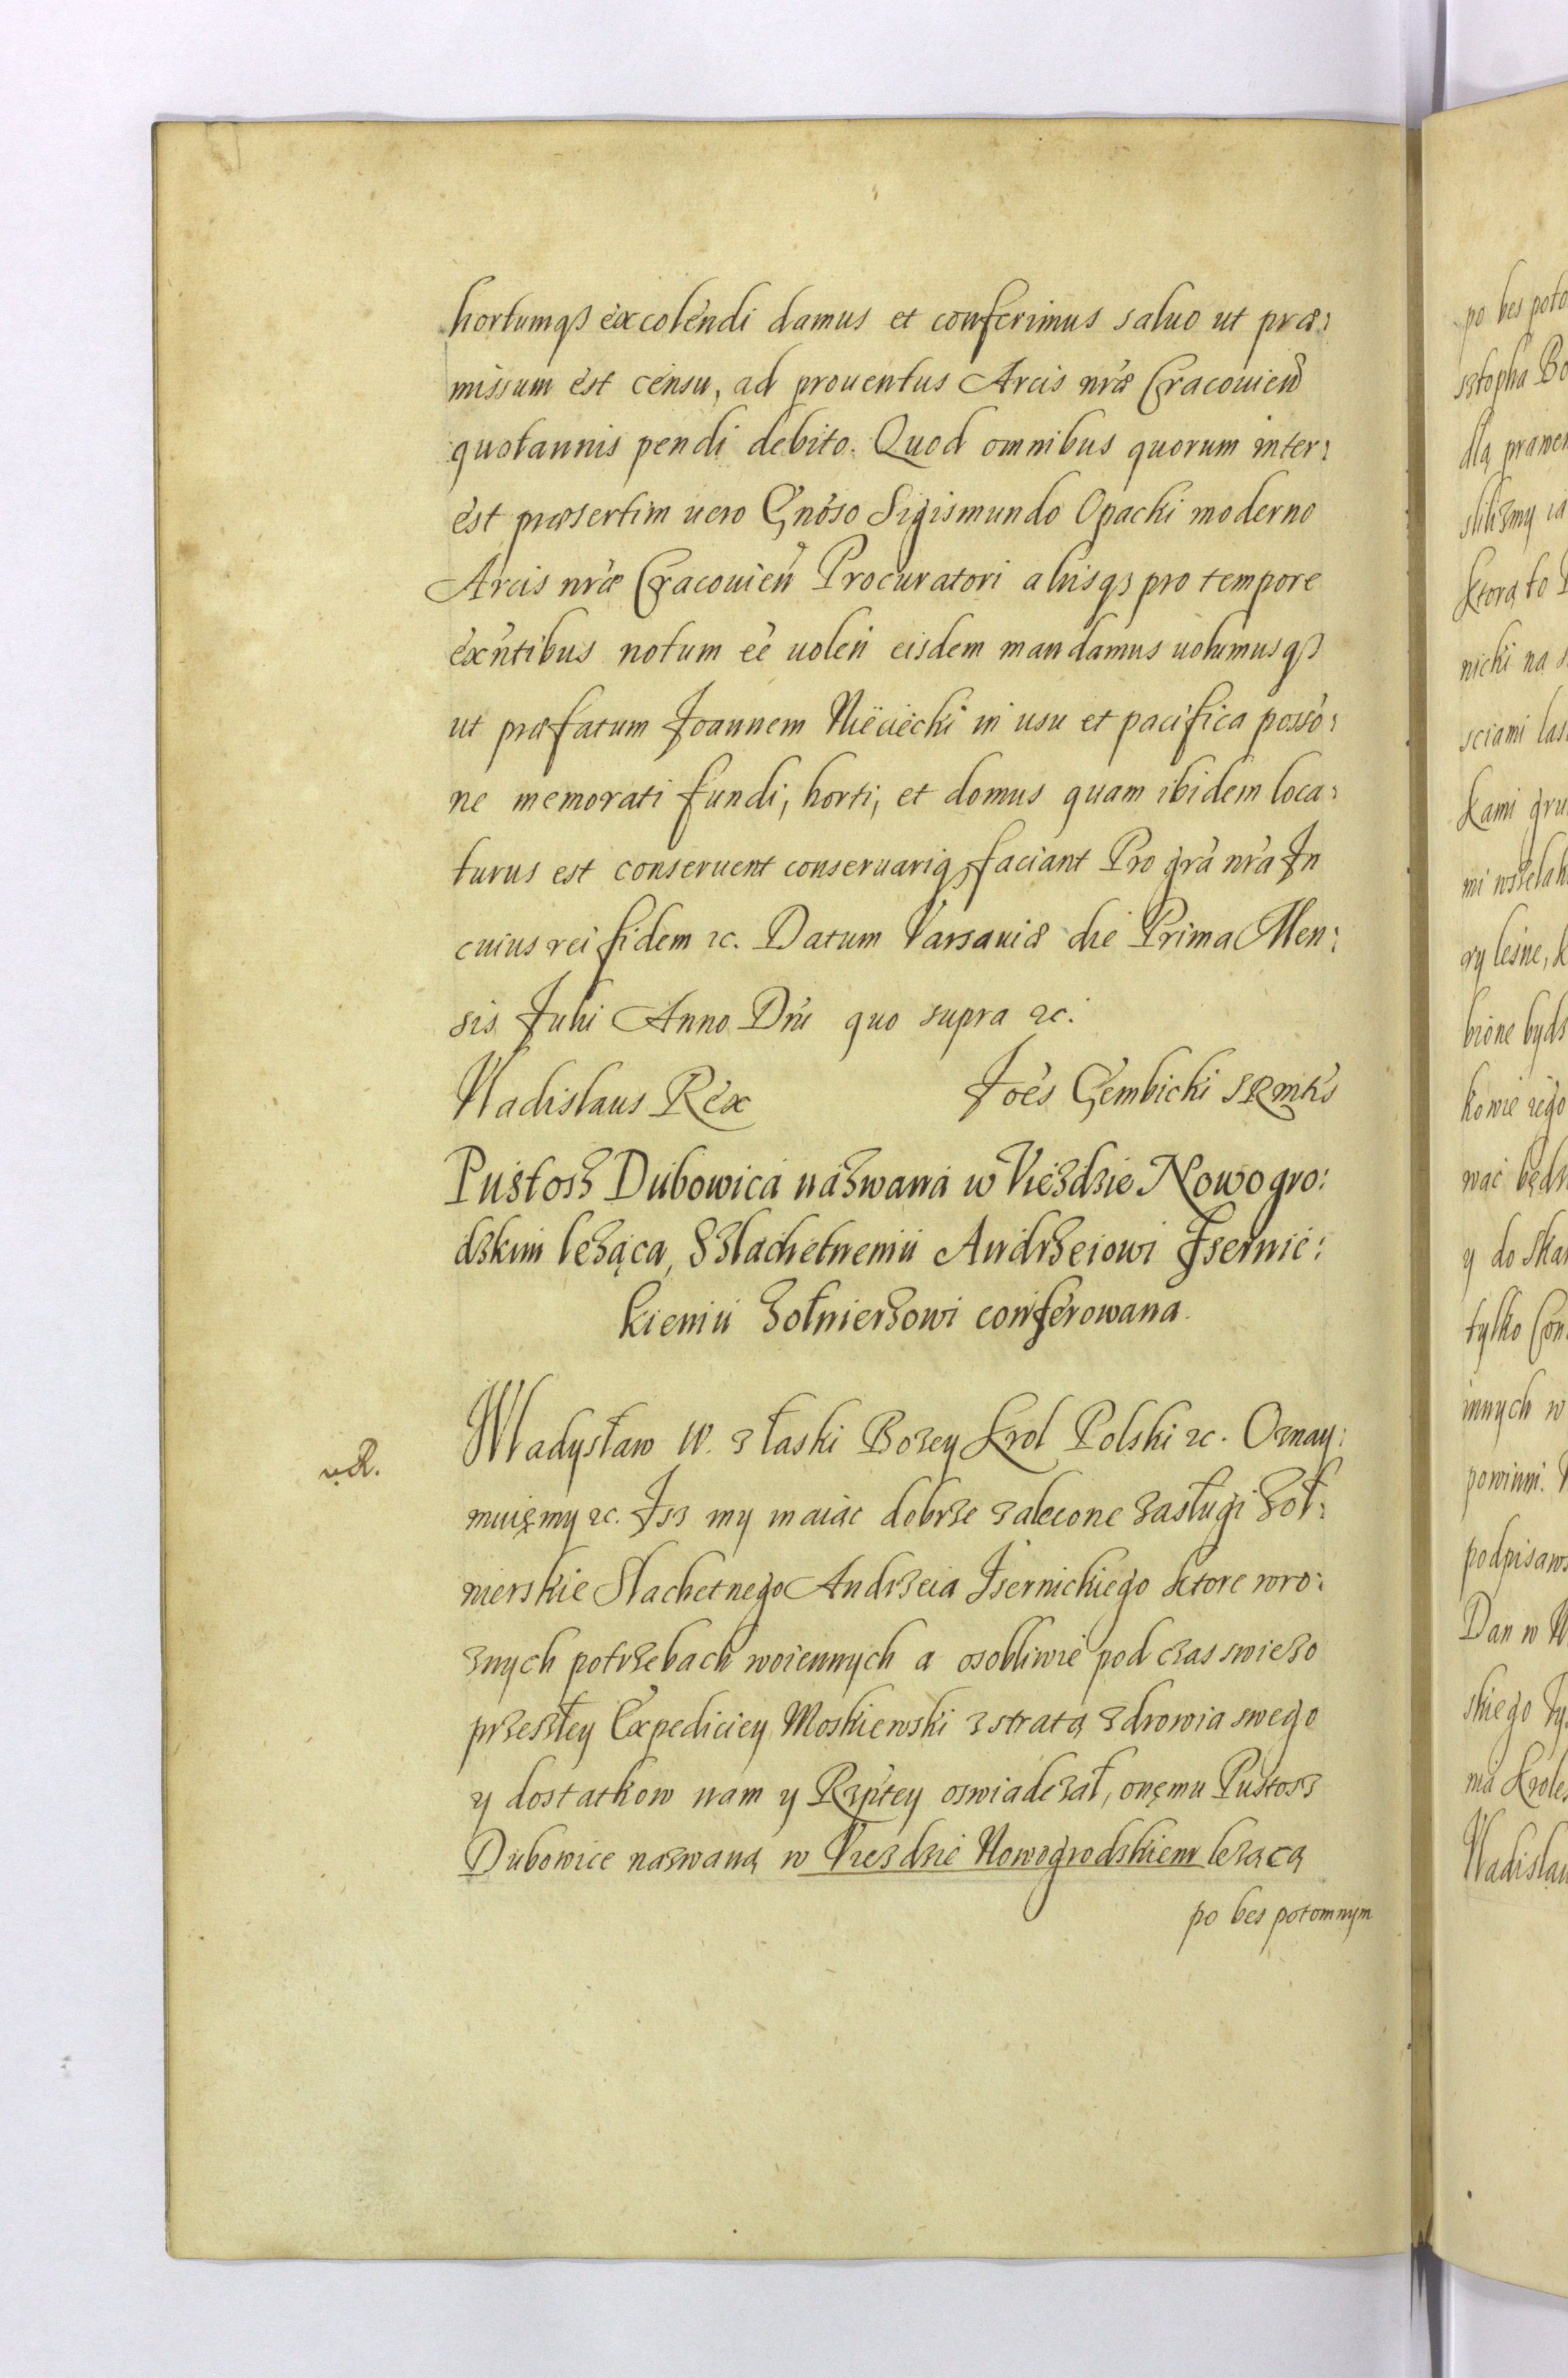 hortumqз excolendi damus et conferimus saluo ut præ:
missum est censu, ad prouentus Arcis nræ Cracouien
quotannis pendi debito. Quod omnibus quorum inter:
est præsertim uero Gnoso Sigismundo Opacki moderno
Arcis nræ Cracouien Procuratori aliisqз pro tempore
exntibus notum eè uolen eisdem mandamus uolumusqз
ut præfatum Joannem Nieciecki in usu et pacifica posso:
ne memorati fundi, horti, et domus quam ibidem loca:
turus est conseruent conseruariqз faciant Pro gra nra In
cuius rei fidem ꝛc. Datum Varsauiæ die Prima Men:
sis Julii Anno Dni quo supra ꝛc.
Vladislaus Rex Joes Gembicki SRmks
Pustosz Dubowica nazwana w Viezdzie Nowogro:
dzkim leząca, Szlachetnemu Andrzeiowi Isernic:
kiemu zołnierzowi conferowana.
uR.
Wladysław IV. z łaski Bozey Krol Polski ꝛc. Oznay:
muięmy ꝛc. Isz my maiąc dobrze zalecone zasługi zoł:
nierskie Slachetnego Andrzeia Isernickiego ktore wro:
znych potrzebach woiennych a osobliwie pod czas swiezo
przeszłey Expediciey Moskiewski z stratą zdrowia swego
y dostatkow nam y Rzptey oswiadczał, onęmu Pustosz
Dubowice nazwaną w Viezdzie Nowogrodskiem lezacą
po bes potomnym
po bes poto
sztopha Bo
dlą prawem
slilizmy ia
Ktorą to P
nicki na s
sciami las
kami gru
mi wszelak
ry lesne, k
bione byds
kowie iego
wac będz
y do Skar
tylko Con
innych w
powinni.
podpisaws
Dan w W
skiego Ty
ma Kroles
Vladislau